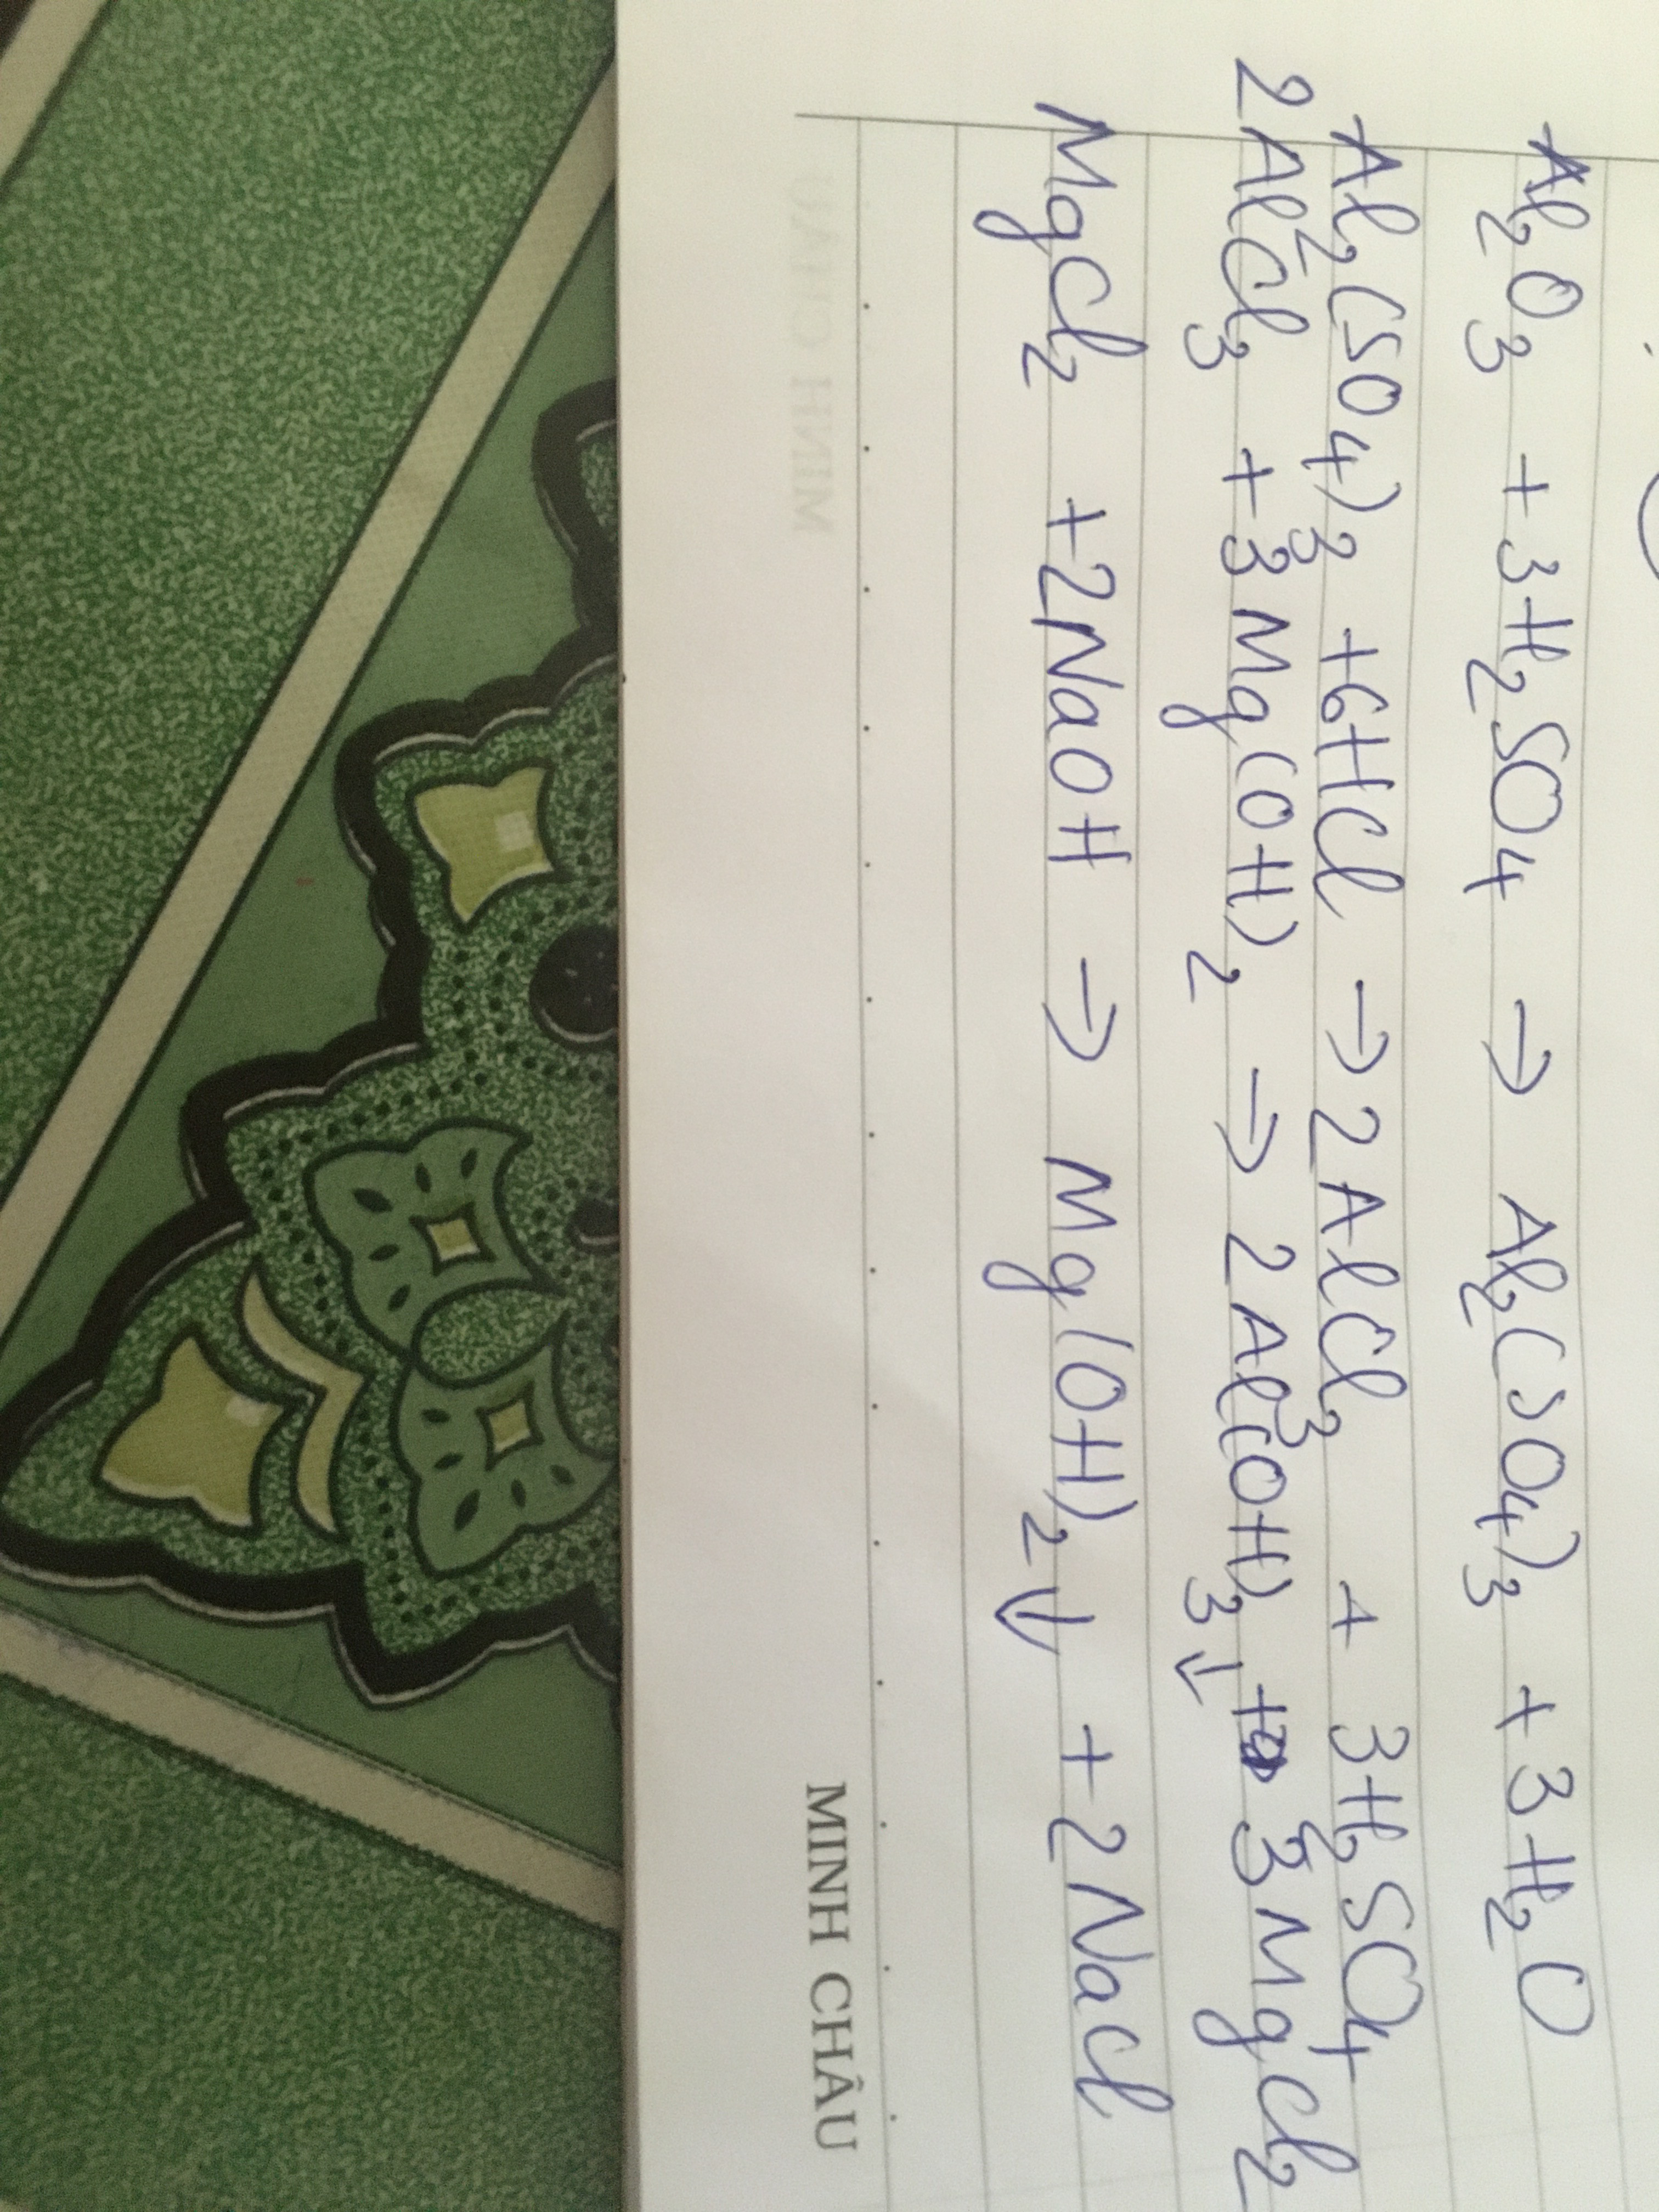 Al₂O₃ + 3H₂SO₄ → Al₂(SO₄)₃ + 3H₂O
Al₂(SO₄)₃ + 6HCl → 2AlCl₃ + 3H₂SO₄
2AlCl₃ + 3Mg(OH)₂ → 2Al(OH)₃↓ + 3MgCl₂
MgCl₂ + 2NaOH → Mg(OH)₂↓ + 2NaCl
MINH CHÂU